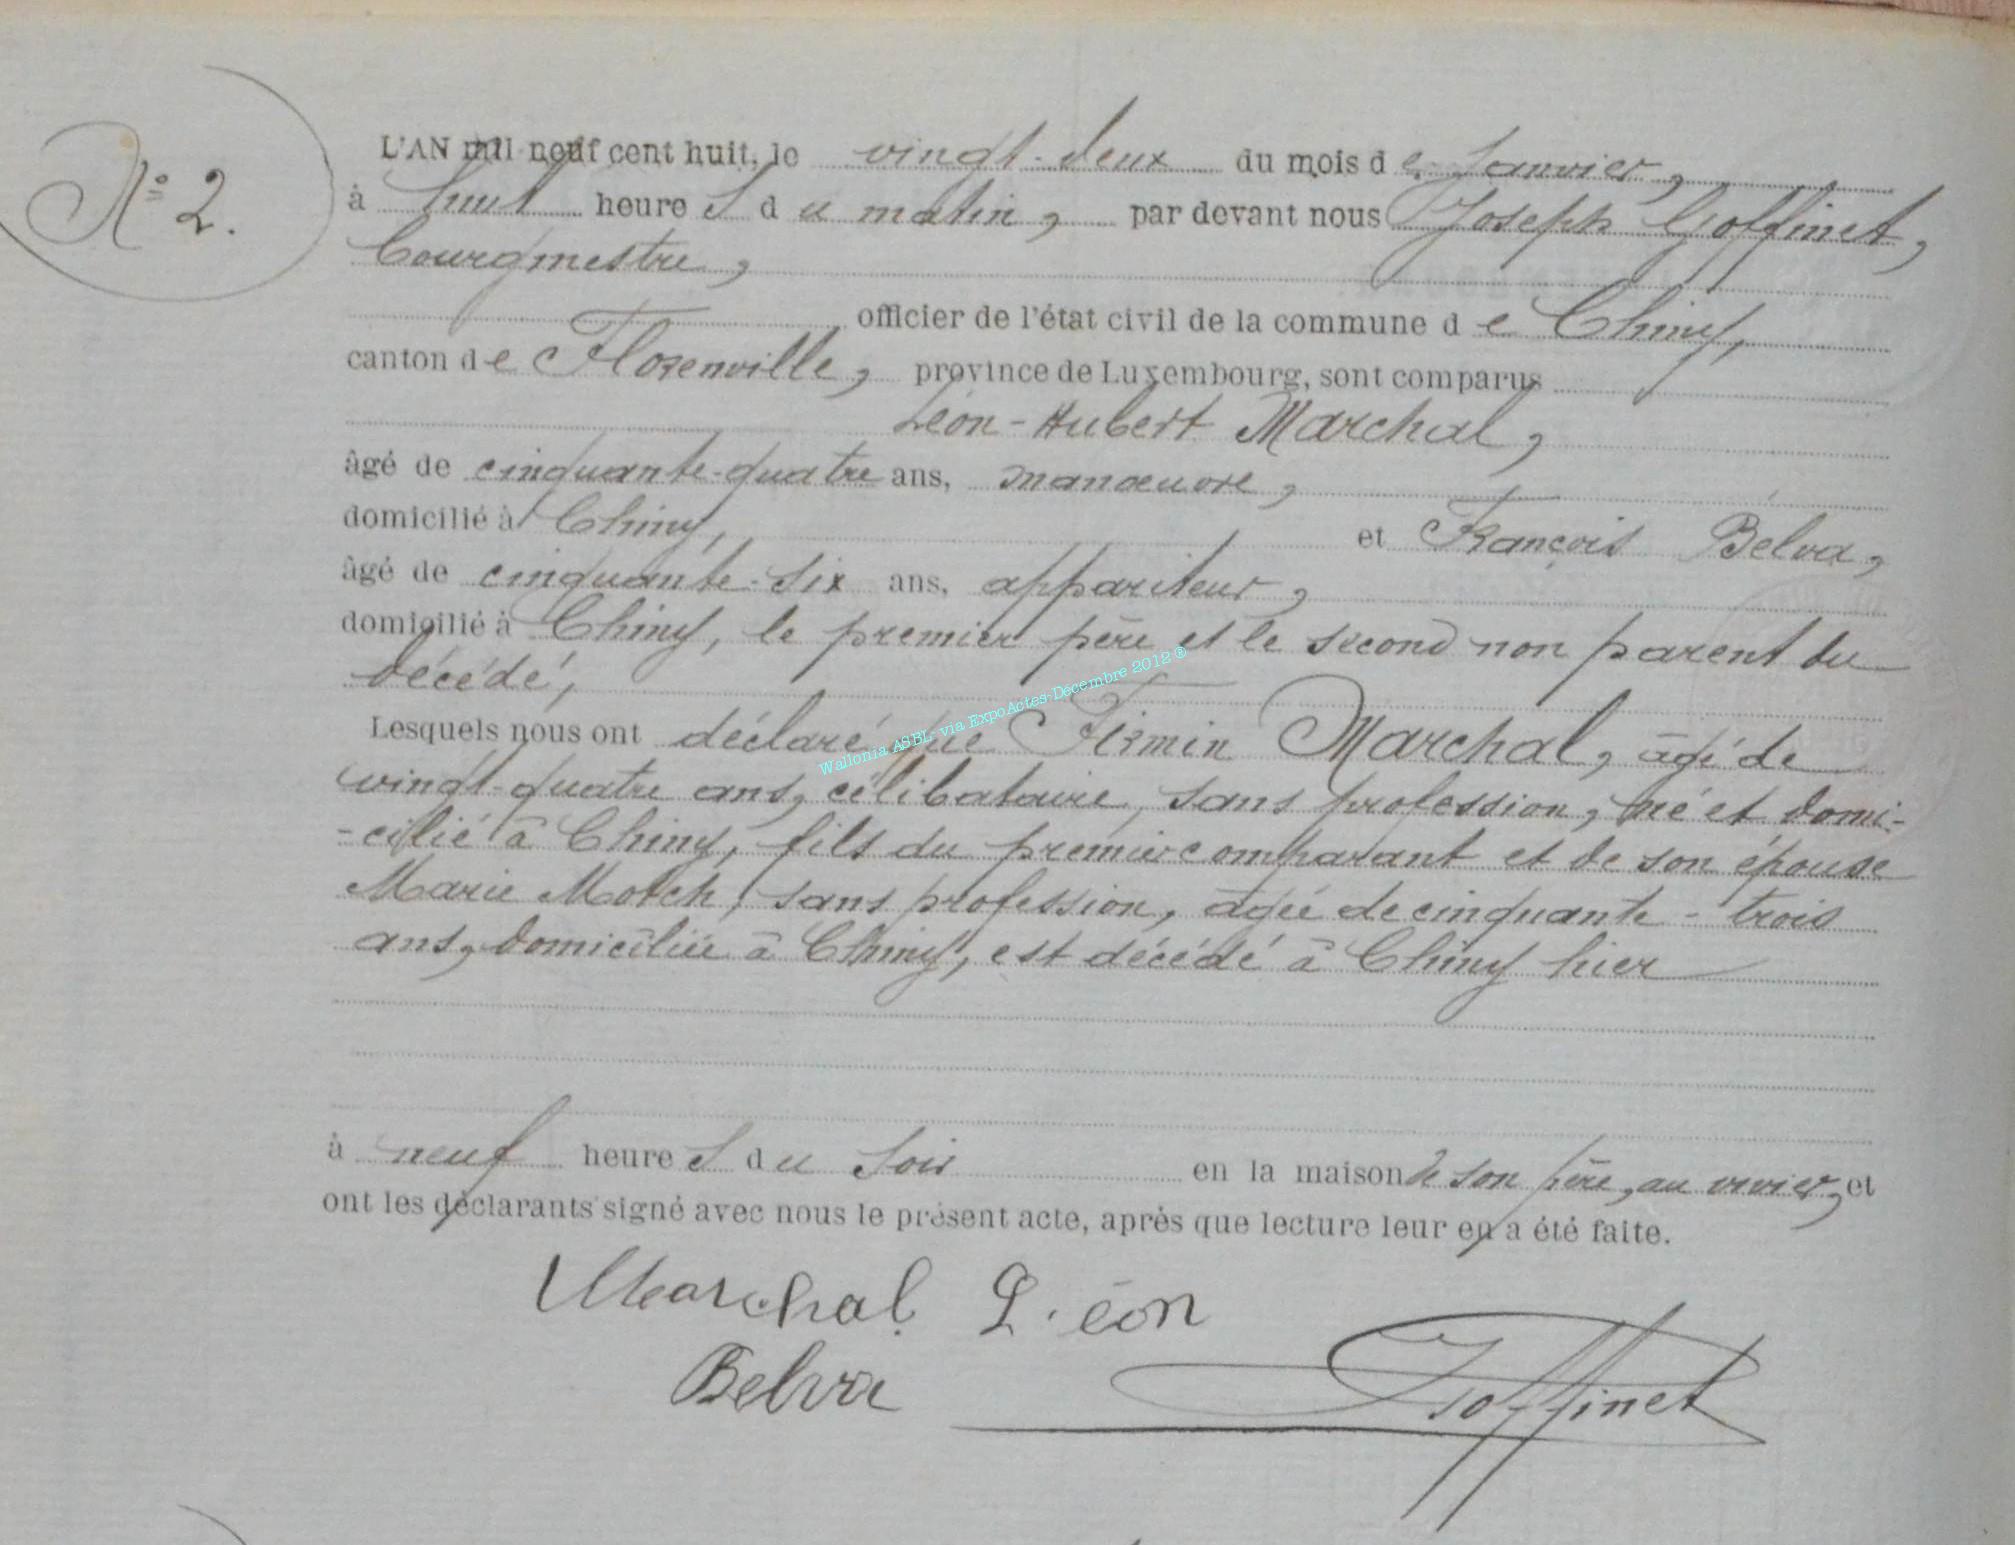 N° 2.
L'AN mil neuf cent huit, le vingt-deux du mois de Janvier,
à huit heures du matin, par devant nous Joseph Goffinet,
bourgmestre,
officier de l'état civil de la commune de Chiny,
canton de Florenville, province de Luxembourg, sont comparus
Léon-Hubert Marchal,
âgé de cinquante-quatre ans, manœuvre,
domicilié à Chiny, et François Belva,
âgé de cinquante-six ans, appariteur,
domicilié à Chiny, le premier père et le second non parent du
décédé,
Lesquels nous ont déclaré que Firmin Marchal, âgé de
vingt-quatre ans, célibataire, sans profession, né et domi-
-cilié à Chiny, fils du premier comparant et de son épouse
Marie Motch, sans profession, âgée de cinquante-trois
ans, domiciliée à Chiny, est décédé à Chiny hier
à neuf heures du soir en la maison de son père, au vivier, et
ont les déclarants signé avec nous le présent acte, après que lecture leur en a été faite.
Marchal Léon
Belva Goffinet
Wallonia ASBL- via ExpoActes-Décembre 2012®